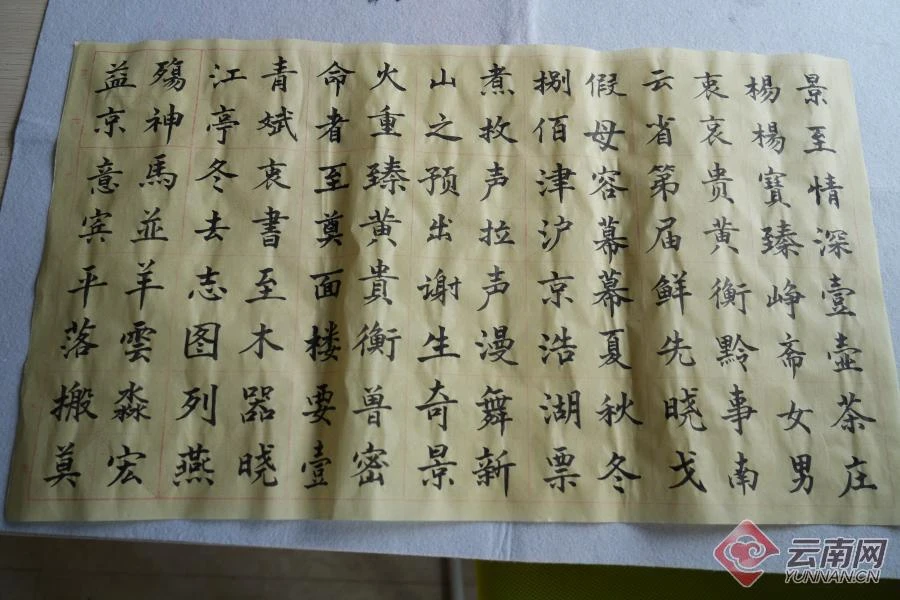 景至情深壹壺茶庄
楊楊寶臻峥斋女男
衷哀贵黄衡黔事南
云省第届鲜先晓戈
假母容幕幕夏秋冬
捌佰津沪京浩湖票
煮牧声拉声漫舞新
山之预出谢生奇景
火重臻黄貴衡兽密
命者至奠面楼要壹
青斌衷書至木器晓
江亭冬去志图列燕
殤神馬並羊雲淼宏
益京意宾平落搬莫
云南网
YUNNAN.CN